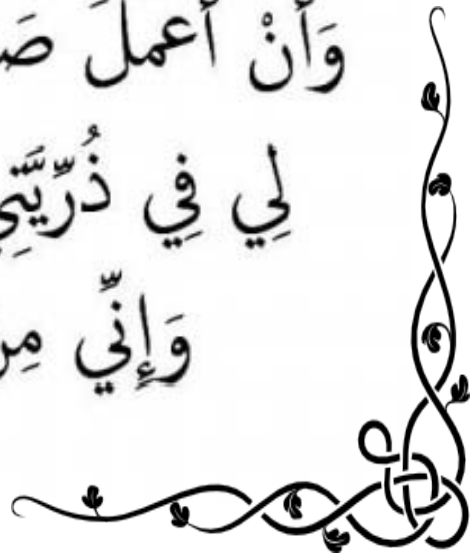 وَأَنْ أَعْمَلَ
لِي فِي ذُرِّيَّتِي
وَإِنِّي